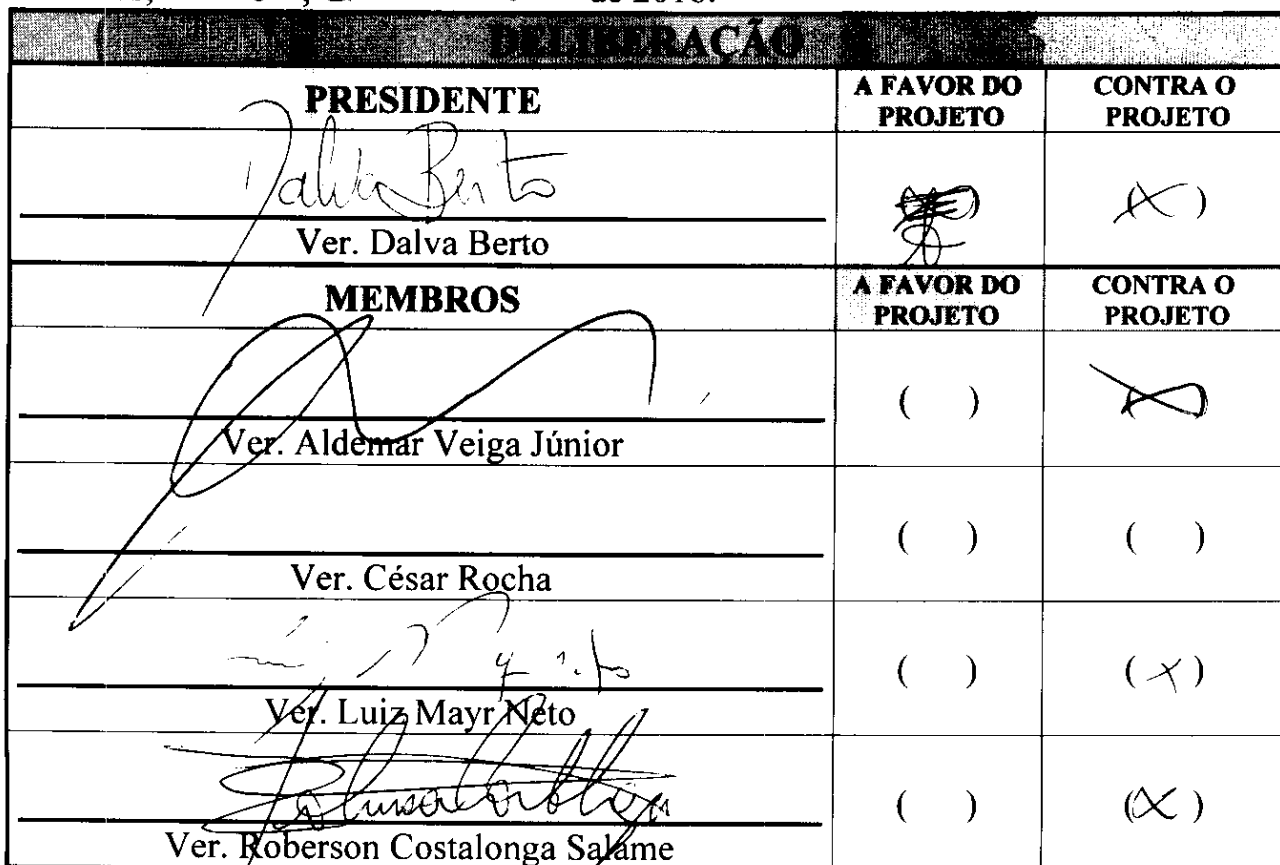 de 2018.
DELIBERAÇÃO
PRESIDENTE
A FAVOR DO PROJETO
CONTRA O PROJETO
Dalva Berto
Ver. Dalva Berto
(X)
MEMBROS
A FAVOR DO PROJETO
CONTRA O PROJETO
Ver. Aldemar Veiga Júnior
( )
(X)
Ver. César Rocha
( )
( )
Ver. Luiz Mayr Neto
( )
(X)
Ver. Roberson Costalonga Salame
( )
(X)